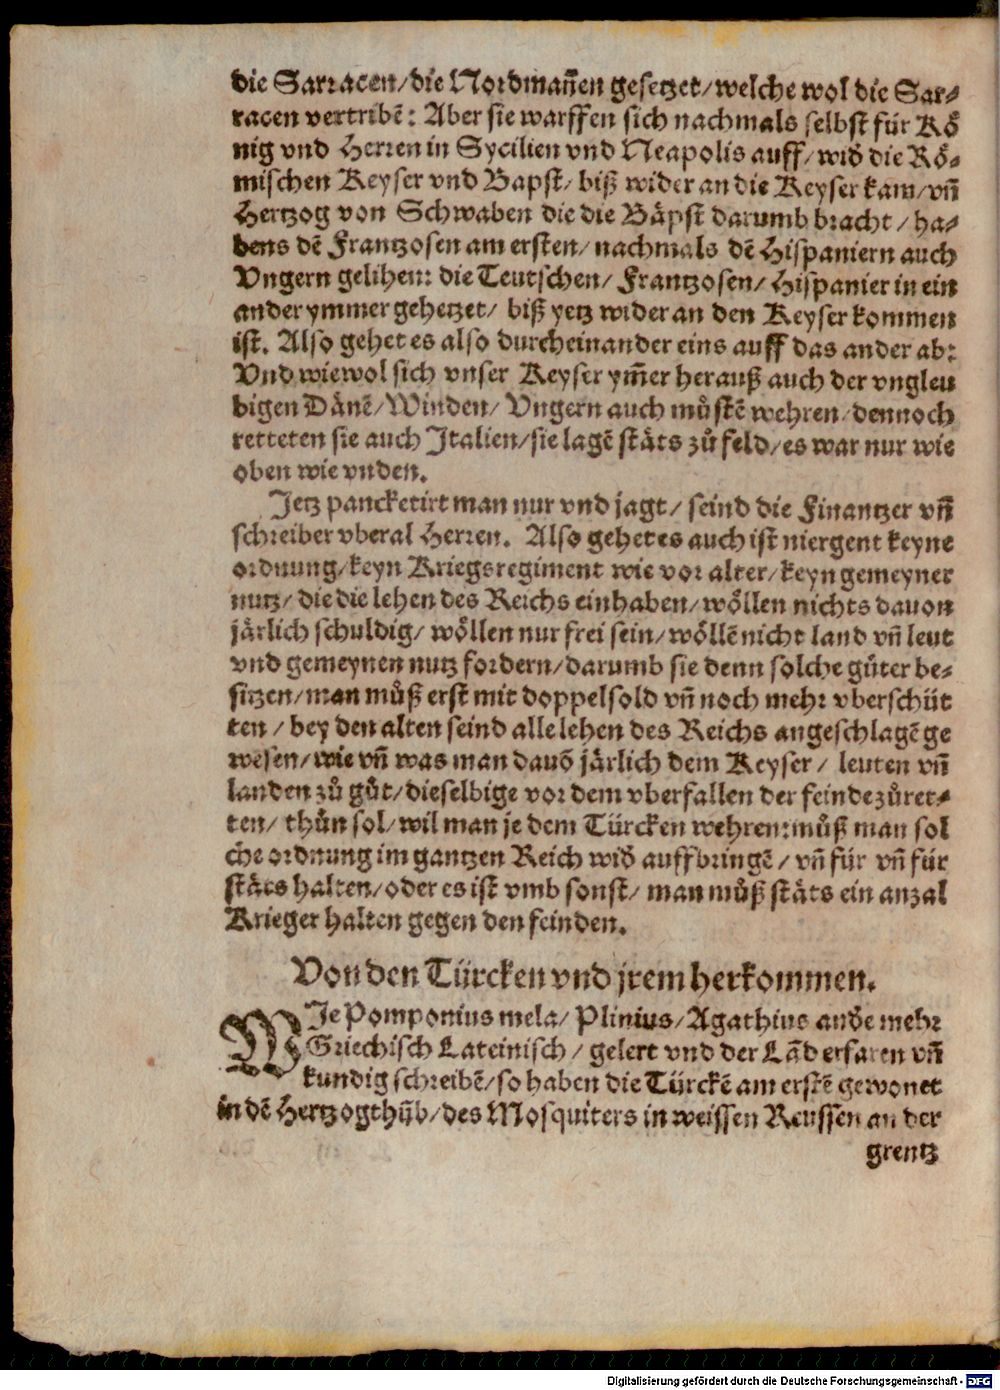 die Sarracen/die Nordmañen gesetzet/welche wol die Sar-
racen vertribẽ: Aber sie warffen sich nachmals selbst für Kö
nig vnd Herren in Sycilien vnd Neapolis auff/wid̕ die Rö-
mischen Keyser vnd Bapst/ biß wider an die Keyser kam/vñ
Hertzog von Schwaben die die Bäpst darumb bracht/ ha-
bens dẽ Frantzosen am ersten/ nachmals dẽ Hispaniern auch
Vngern gelihen: die Teutschen/ Frantzosen/ Hispanier in ein
ander ymmer gehetzet/ biß yetz wider an den Keyser kommen
ist. Also gehet es also durcheinander eins auff das ander ab:
Vnd wiewol sich vnser Keyser ym̃er herauß auch der vngleu
bigen Dänẽ/Winden/ Vngern auch můstẽ wehren/dennoch
retteten sie auch Italien/sie lagẽ stäts zů feld/es war nur wie
oben wie vnden.
Jetz pancketirt man nur vnd jagt/ seind die Finantzer vñ
schreiber vberal Herren. Also gehet es auch ist niergent keyne
ordnung/keyn Kriegsregiment wie vor alter/keyn gemeyner
nutz/ die die lehen des Reichs einhaben/wöllen nichts dauon
järlich schuldig/ wöllen nur frei sein/wöllẽ nicht land vñ leut
vnd gemeynen nutz fordern/darumb sie denn solche güter be-
sitzen/man můß erst mit doppelsold vñ noch mehr vberschüt
ten/ bey den alten seind alle lehen des Reichs angeschlagẽ ge
wesen/wie vñ was man dauõ järlich dem Keyser/ leuten vñ
landen zů gůt/dieselbige vor dem vberfallen der feinde zůret-
ten/ thůn sol/wil man je dem Türcken wehren: můß man sol
che ordnung im gantzen Reich wid̕ auffbringẽ/ vñ für vñ für
stäts halten/oder es ist vmb sonst/ man můß stäts ein anzal
Krieger halten gegen den feinden.
Von den Türcken vnd jrem herkommen.
WJe Pomponius mela/ Plinius/Agathius and̕e mehr
Griechisch Lateinisch/ gelert vnd der Lãd erfaren vñ
kundig schreibẽ/so haben die Türckẽ am erstẽ gewonet
in dẽ Hertzogthũb/des Mosquiters in weissen Reussen an der
grentz
Digitalisierung gefördert durch die Deutsche Forschungsgemeinschaft - DFG